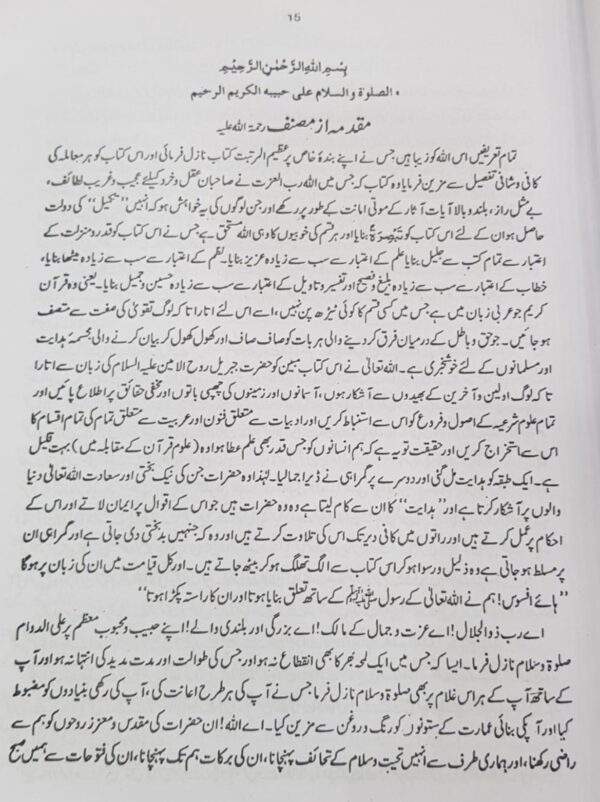 15
بسم اللہ الرَّحْمٰنِ الرَّحِیْمِ
الصلوة والسلام علی حبیبه الکریم الرحیم
مقدمہ از مصنف رحمۃ اللہ علیہ
تمام تعریفیں اس اللہ کو زیبا ہیں جس نے اپنے بندۂ خاص پر عظیم المرتبت کتاب نازل فرمائی اور اس کتاب کو ہر معاملہ کی
کافی وشافی تفصیل سے مزین فرمایا وہ کتاب کہ جس میں اللہ رب العزت نے صاحبان عقل وخرد کیلئے عجیب وغریب لطائف،
بے مثل راز، بلند وبالا آیات آثار کے موتی امانت کے طور پر رکھے اور جن لوگوں کی یہ خواہش ہو کہ انہیں "تکمیل" کی دولت
حاصل ہو ان کے لئے اس کتاب کو تَبْصِرَۃً بنایا اور ہر قسم کی خوبیوں کا وہی اللہ مستحق ہے جس نے اس کتاب کو قدر ومنزلت کے
اعتبار سے تمام کتب سے جلیل بنایا علم کے اعتبار سے سب سے زیادہ عزیز بنایا۔ نظم کے اعتبار سے سب سے زیادہ میٹھا بنایا،
خطاب کے اعتبار سے سب سے زیادہ بلیغ وفصیح اور تفسیر وتاویل کے اعتبار سے سب سے زیادہ حسین وجمیل بنایا۔ یعنی وہ قرآن
کریم جو عربی زبان میں ہے جس میں کسی قسم کا کوئی ٹیڑھ پن نہیں، اسے اس لئے اتارا تا کہ لوگ تقویٰ کی صفت سے متصف
ہو جائیں۔ جو حق وباطل کے درمیان فرق کر دینے والی ہر بات کو صاف صاف اور کھول کھول کر بیان کرنے والی مجسمۂ ہدایت
اور مسلمانوں کے لئے خوشخبری ہے۔ اللہ تعالیٰ نے اس کتاب مبین کو حضرت جبریل روح الامین علیہ السلام کی زبان سے اتارا
تا کہ لوگ اولین و آخرین کے بھیدوں سے آشکار ہوں، آسمانوں اور زمینوں کی چھپی باتوں اور مخفی حقائق پر اطلاع پائیں اور
تمام علوم شرعیہ کے اصول وفروع کو اس سے استنباط کریں اور ادبیات سے متعلق فنون اور عربیت سے متعلق تمام کی تمام اقسام کا
اس سے استخراج کریں اور حقیقت تو یہ ہے کہ ہم انسانوں کو جس قدر بھی علم عطا ہوا وہ (علوم قرآن کے مقابلہ میں) بہت قلیل
ہے۔ ایک طبقہ کو ہدایت مل گئی اور دوسرے پر گمراہی نے ڈیرا جمالیا۔ لہٰذا وہ حضرات جن کی نیک بختی اور سعادت اللہ تعالیٰ دنیا
والوں پر آشکار کرتا ہے اور "ہدایت" کا ان سے کام لیتا ہے وہ وہ حضرات ہیں جو اس کے اقوال پر ایمان لاتے اور اس کے
احکام پر عمل کرتے ہیں اور راتوں میں کافی دیر تک اس کی تلاوت کرتے ہیں اور وہ کہ جنہیں بدبختی دی جاتی ہے اور گمراہی ان
پر مسلط ہو جاتی ہے وہ ذلیل ورسوا ہو کر اس کتاب سے الگ تھلگ ہو کر بیٹھ جاتے ہیں۔ اور کل قیامت میں ان کی زبان پر ہو گا
"ہائے افسوس! ہم نے اللہ تعالیٰ کے رسول ﷺ کے ساتھ تعلق بنایا ہوتا اور ان کا راستہ پکڑا ہوتا"
اے رب ذوالجلال! اے عزت وجمال کے مالک! اے بزرگی اور بلندی والے! اپنے حبیب ومحبوب معظم پر علی الدوام
صلوۃ وسلام نازل فرما۔ ایسا کہ جس میں ایک لحہ بھر کا بھی انقطاع نہ ہو اور جس کی طوالت اور مدت مدید کی انتہا نہ ہو اور آپ
کے ساتھ آپ کے ہر اس غلام پر بھی صلوۃ وسلام نازل فرما جس نے آپ کی ہر طرح اعانت کی، آپ کی رکھی بنیادوں کو مضبوط
کیا اور آپ کی بنائی عمارت کے ستونوں کو رنگ و روغن سے مزین کیا۔ اے اللہ! ان حضرات کی مقدس ومعزز روحوں کو ہم سے
راضی رکھنا، اور ہماری طرف سے انہیں تحیت وسلام کے تحائف پہنچانا، ان کی برکات ہم تک پہنچانا، ان کی فتوحات سے ہمیں صبح